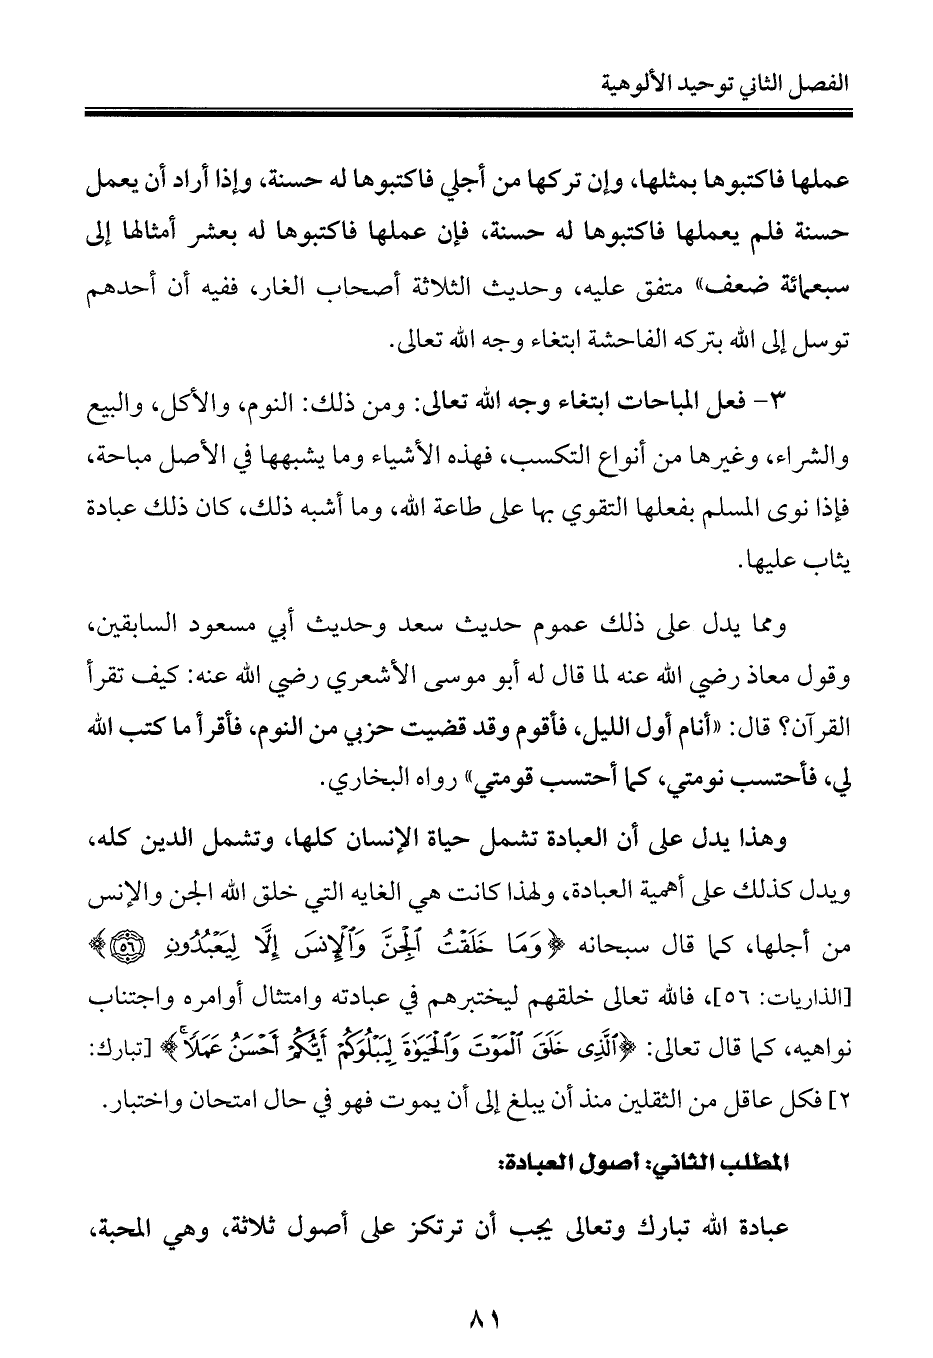 الفصل الثاني توحيد الألوهية
عملها فاكتبوها بمثلها، وإن تركها من أجلي فاكتبوها له حسنة، وإذا أراد أن يعمل
حسنة فلم يعملها فاكتبوها له حسنة، فإن عملها فاكتبوها له بعشر أمثالها إلى
سبعمائة ضعف» متفق عليه، وحديث الثلاثة أصحاب الغار، ففيه أن أحدهم
توسل إلى الله بتركه الفاحشة ابتغاء وجه الله تعالى.
٣- فعل المباحات ابتغاء وجه الله تعالى: ومن ذلك: النوم، والأكل، والبيع
والشراء، وغيرها من أنواع التكسب، فهذه الأشياء وما يشبهها في الأصل مباحة،
فإذا نوى المسلم بفعلها التقوي بها على طاعة الله، وما أشبه ذلك، كان ذلك عبادة
يثاب عليها.
ومما يدل على ذلك عموم حديث سعد وحديث أبي مسعود السابقين،
وقول معاذ رضي الله عنه لما قال له أبو موسى الأشعري رضي الله عنه: كيف تقرأ
القرآن؟ قال: «أنام أول الليل، فأقوم وقد قضيت حزبي من النوم، فأقرأ ما كتب الله
لي، فأحتسب نومتي، كما أحتسب قومتي» رواه البخاري.
وهذا يدل على أن العبادة تشمل حياة الإنسان كلها، وتشمل الدين كله،
ويدل كذلك على أهمية العبادة، ولهذا كانت هي الغايه التي خلق الله الجن والإنس
من أجلها، كما قال سبحانه ﴿وَمَا خَلَقْتُ ٱلْجِنَّ وَٱلْإِنسَ إِلَّا لِيَعْبُدُونِ ۝٥٦﴾
[الذاريات: ٥٦]، فالله تعالى خلقهم ليختبرهم في عبادته وامتثال أوامره واجتناب
نواهيه، كما قال تعالى: ﴿ٱلَّذِى خَلَقَ ٱلْمَوْتَ وَٱلْحَيَوٰةَ لِيَبْلُوَكُمْ أَيُّكُمْ أَحْسَنُ عَمَلًا ۚ﴾ [تبارك:
٢] فكل عاقل من الثقلين منذ أن يبلغ إلى أن يموت فهو في حال امتحان واختبار.
المطلب الثاني: أصول العبادة:
عبادة الله تبارك وتعالى يجب أن ترتكز على أصول ثلاثة، وهي المحبة،
٨١